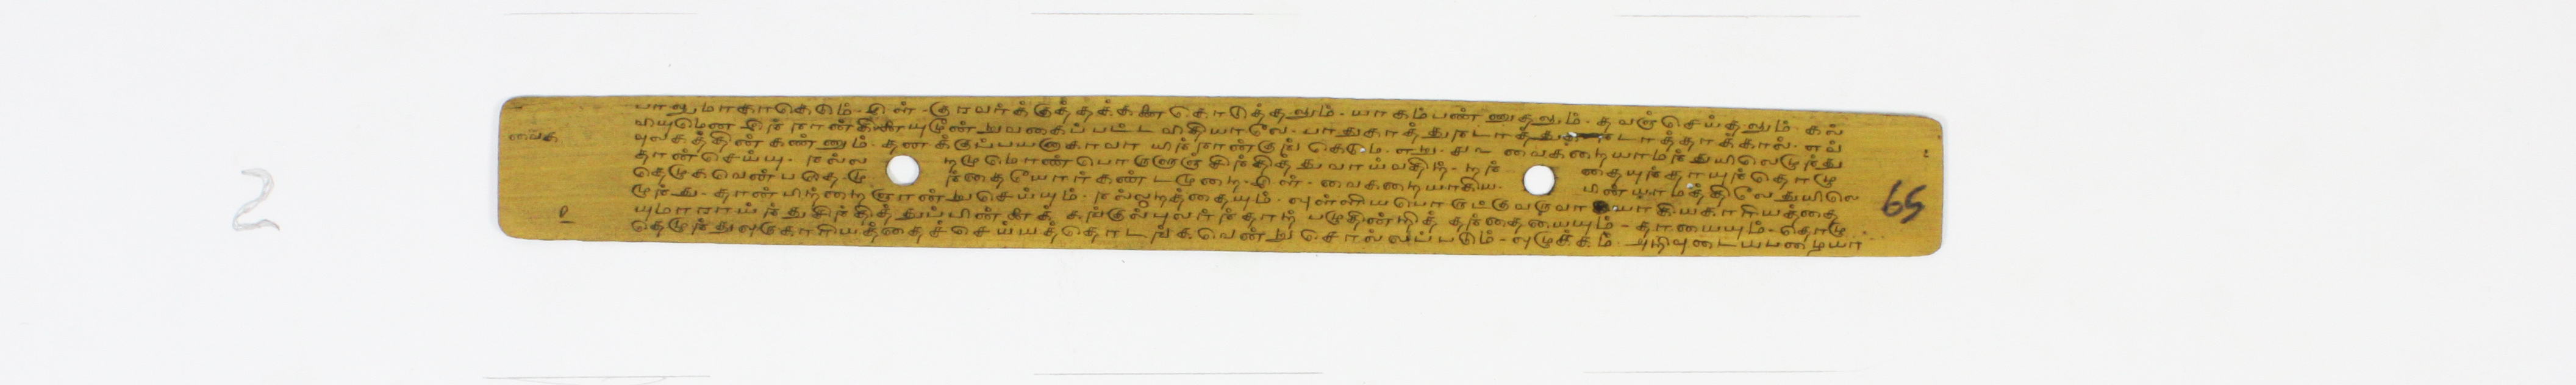 பாலுமாகாகெடும். இன். குரவர்க்குத்தக்கணை கொடுத்தலும். யாகம்பண்ணுதலும். தவஞ்செய்தலும். கல்
வியுமென இந்நான்கினையுமூன்றுவகைப்பட்ட விதியாலே. பாதுகாத்துநடாத்துக நடாத்தாக்கால். எவ்
வுலகத்தின்கண்ணும். தனக்குப்பயனாகாவா யிந்நான்குங் கெடும். எறு. வைகறையாமந் துயிலெழுந்து
தான்செய்யு. நல்ல றமுமொண்பொருளுஞ் சிந்தித்து வாய்வதிற். றந் தையுந்தாயுந் தொழு
தெழுகவென்பதே. மு ந்தையோர்கண்டமுறை. இன். வைகறையாகிய. பின்யாமத்திலே துயிலெ
ழுந்து. தான்பிற்றைஞான்றுசெய்யும். நல்லறத்தையும். ஒள்ளியபொருட்குவருவாயாகியகாரியத்தை
யுமாராய்ந்துசிந்தித்துப்பின்னைக் கங்குல்புலர்ந்தாற் பழுதின்றித் தந்தையையும்- தாயையும்- தொழு
தெழுந்துஒருகாரியத்தைச்செய்யத்தொடங்கவென்று சொல்லப்படும்- ஒழுக்கம். அறிவுடையபழையா
வைக
65
2